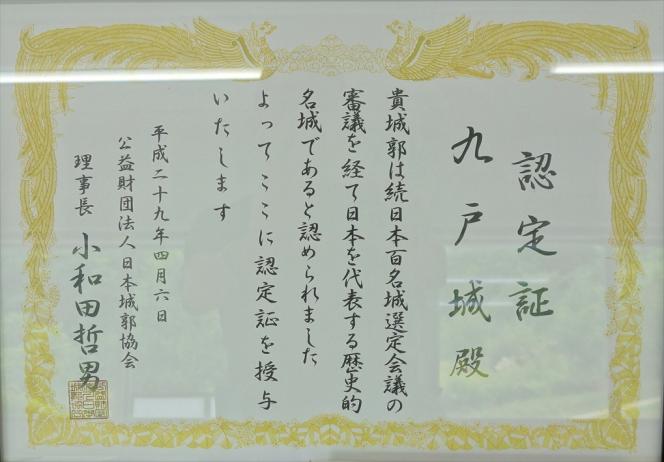 認定証
九戸城殿
貴城郭は続日本百名城選定会議の
審議を経て日本を代表する歴史的
名城であると認められました
よってここに認定証を授与
いたします
平成二十九年四月六日
公益財団法人日本城郭協会
理事長 小和田哲男